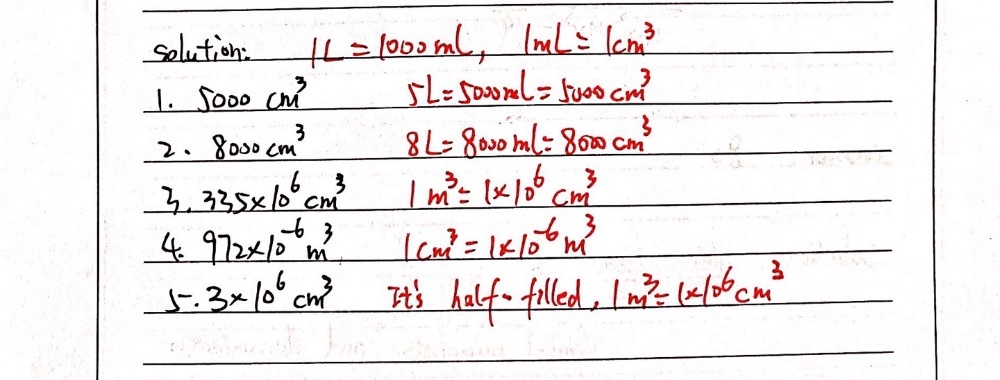 solution: 1L = 1000 mL, 1mL = 1cm³
1. 5000 cm³ 5L = 5000mL = 5000 cm³
2. 8000 cm³ 8L = 8000 mL = 8000 cm³
3. 335×10⁶ cm³ 1 m³ = 1×10⁶ cm³
4. 972×10⁻⁶ m³ 1cm³ = 1×10⁻⁶ m³
5. 3×10⁶ cm³ It's half-filled, 1m³ = 1×10⁶ cm³